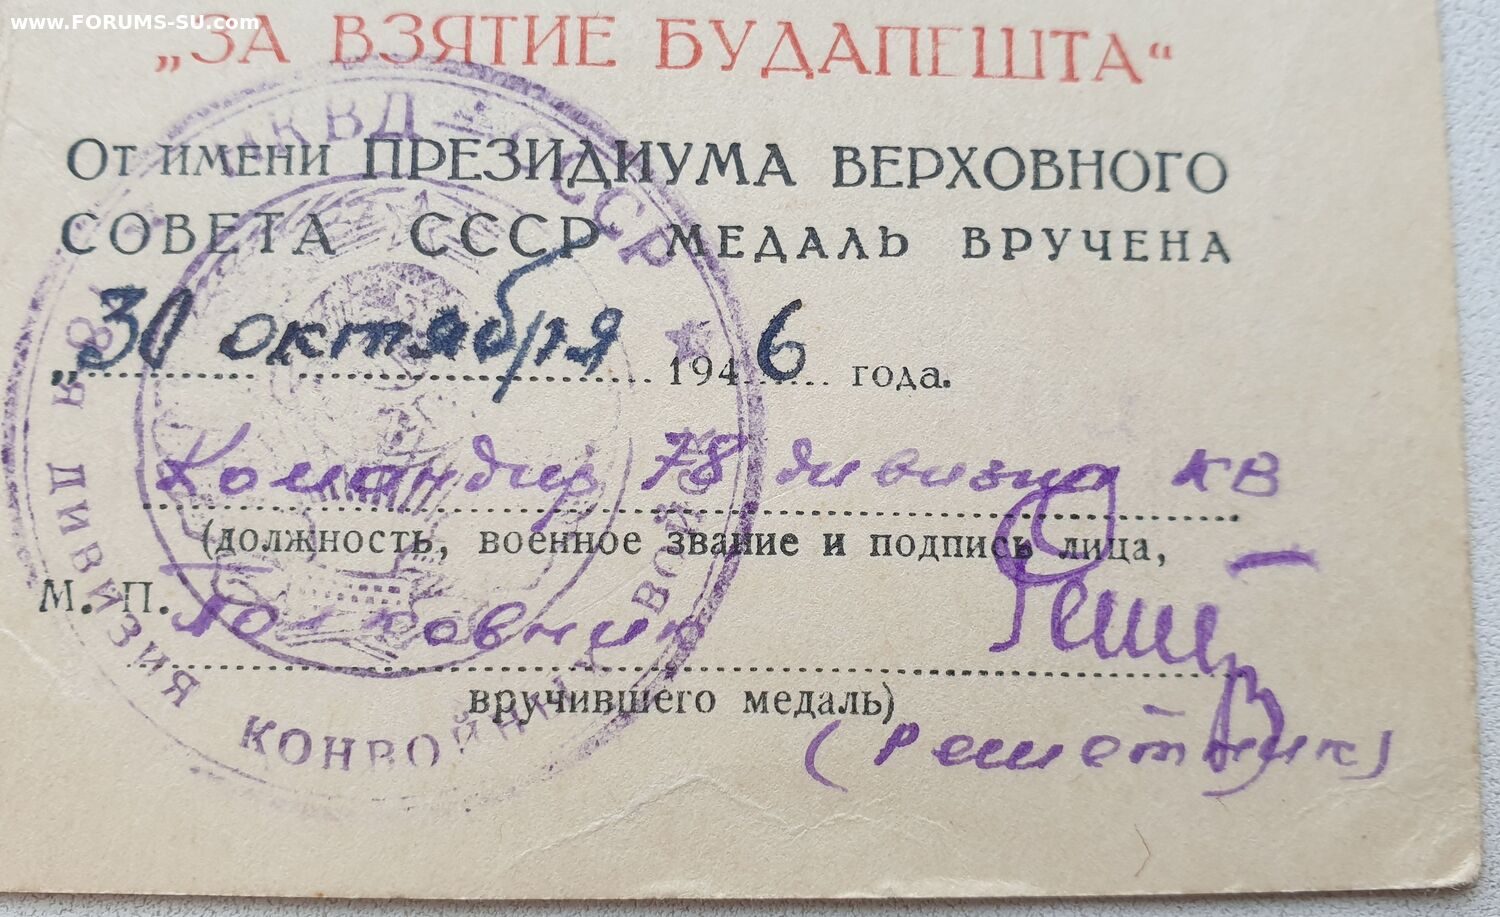 www.FORUMS-SU.com
„ЗА ВЗЯТИЕ БУДАПЕШТА“
ОТ ИМЕНИ ПРЕЗИДИУМА ВЕРХОВНОГО
СОВЕТА СССР МЕДАЛЬ ВРУЧЕНА
„30 октября 1946 года.
Командир 78 дивизии КВ
(должность, военное звание и подпись лица,
М. П. Полковник
вручившего медаль)
(Решетник)
НКВД - СССР
78Я ДИВИЗИЯ КОНВОЙНЫХ ВОЙСК